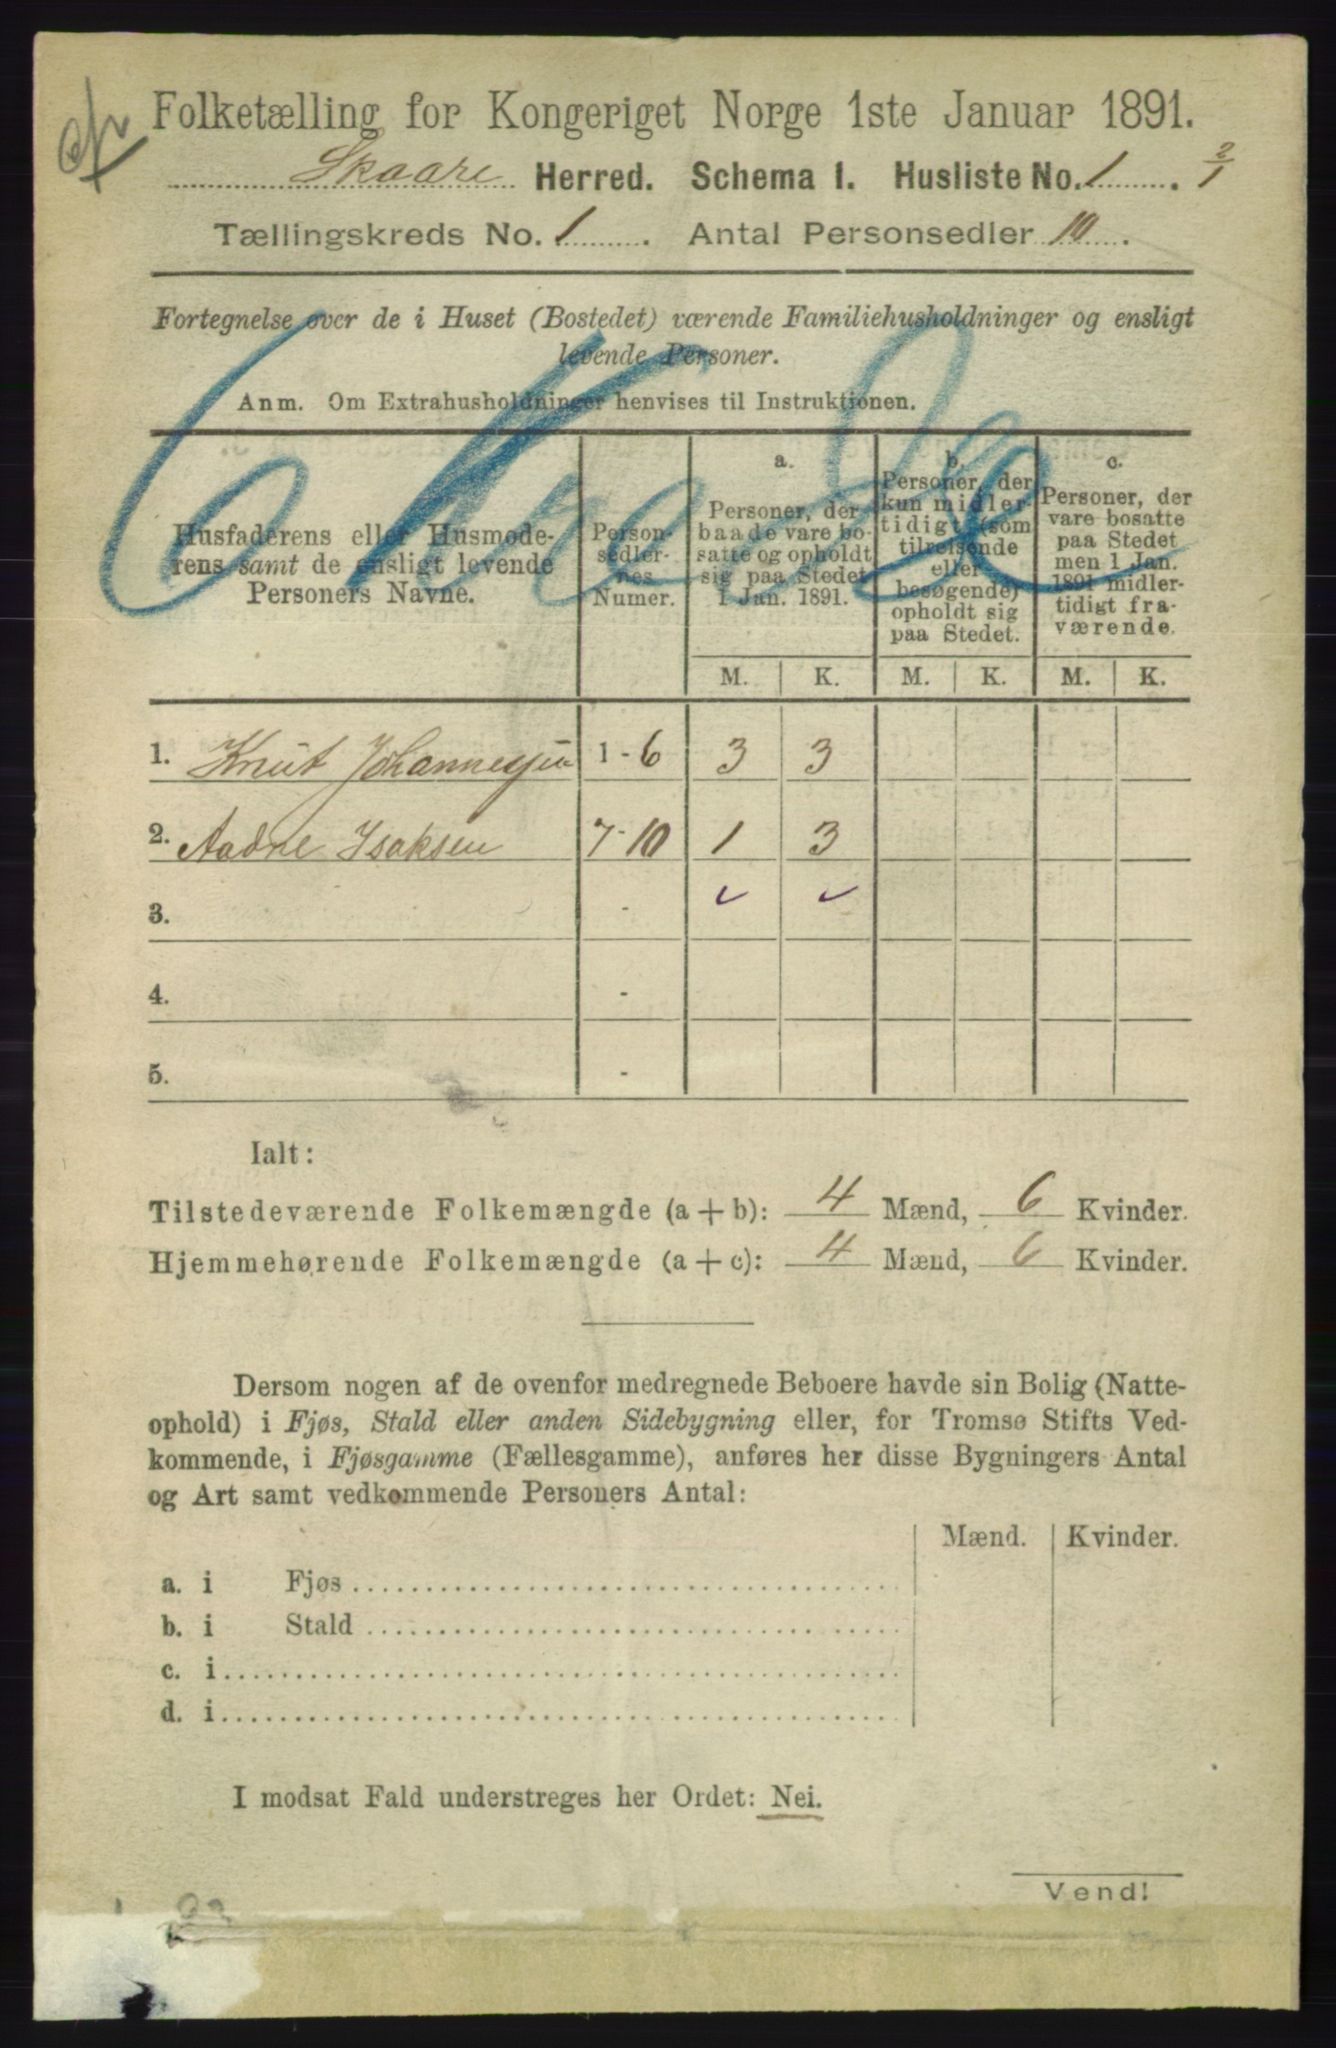 Folketælling for Kongeriget Norge 1ste Januar 1891.
Skaare Herred. Schema 1. Husliste No. 1. 2/1
Tællingskreds No. 1. Antal Personsedler 10.
Fortegnelse over de i Huset (Bostedet) værende Familiehusholdninger og ensligt
levende Personer.
Anm. Om Extrahusholdninger henvises til Instruktionen.
Husfaderens eller Husmode-
rens samt de ensligt levende
Personers Navne.
Person-
sedler-
nes
Numer.
a.
Personer, der
baade vare bo-
satte og opholdt
sig paa Stedet
1 Jan. 1891.
b.
Personer, der
kun midler-
tidigt (som
tilreisende
eller
besøgende)
opholdt sig
paa Stedet.
c.
Personer, der
vare bosatte
paa Stedet
men 1 Jan.
1891 midler-
tidigt fra-
værende.
M. K. M. K. M. K.
1. Knut Johannesen 1-6 3 3
2. Aadne Isaksen 7-10 1 3
3. -
4. -
5. -
Ialt:
Tilstedeværende Folkemængde (a+b): 4 Mænd, 6 Kvinder.
Hjemmehørende Folkemængde (a+c): 4 Mænd, 6 Kvinder.
Dersom nogen af de ovenfor medregnede Beboere havde sin Bolig (Natte-
ophold) i Fjøs, Stald eller anden Sidebygning eller, for Tromsø Stifts Ved-
kommende, i Fjøsgamme (Fællesgamme), anføres her disse Bygningers Antal
og Art samt vedkommende Personers Antal:
Mænd. Kvinder.
a. i Fjøs
b. i Stald
c. i
d. i
I modsat Fald understreges her Ordet: Nei.
Vend!